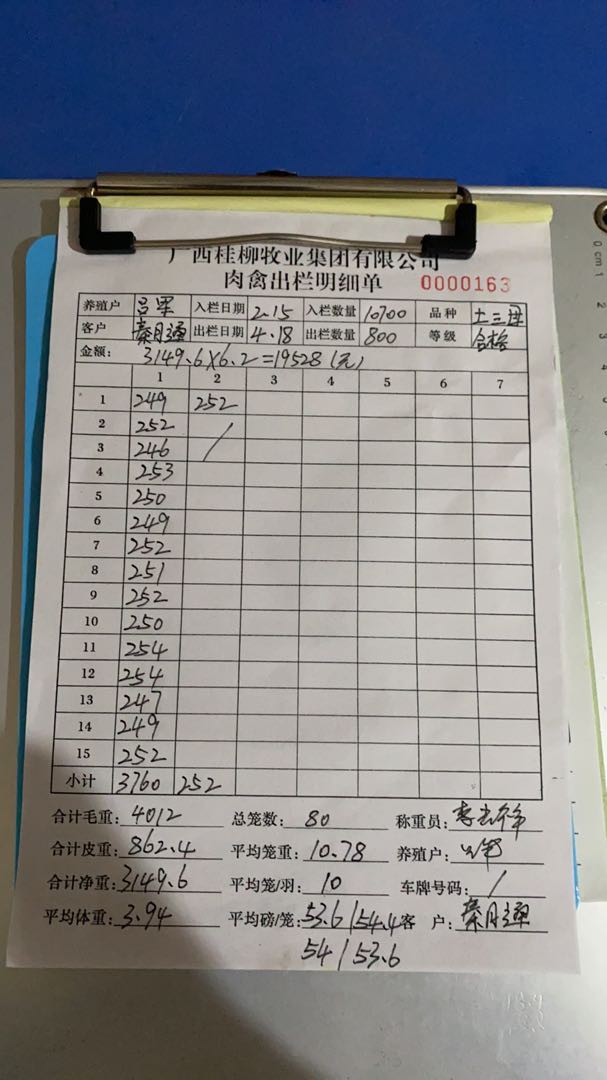 广西桂柳牧业集团有限公司
肉禽出栏明细单 0000163
养殖户 吕军 入栏日期 2.15 入栏数量 10700 品种 土三母
客户 秦月通 出栏日期 4.18 出栏数量 800 等级 合格
金额: 3149.6×6.2=19528(元)
1 2 3 4 5 6 7
1 249 252
2 252 /
3 246
4 253
5 250
6 249
7 252
8 251
9 252
10 250
11 254
12 254
13 247
14 249
15 252
小计 3760 252
合计毛重: 4012 总笼数: 80 称重员: 李
合计皮重: 862.4 平均笼重: 10.78 养殖户:
合计净重: 3149.6 平均笼/羽: 10 车牌号码: /
平均体重: 3.94 平均磅/笼: 53.6/54.4 客 户: 秦月通
54/53.6
0 cm 1
2
3
4
5